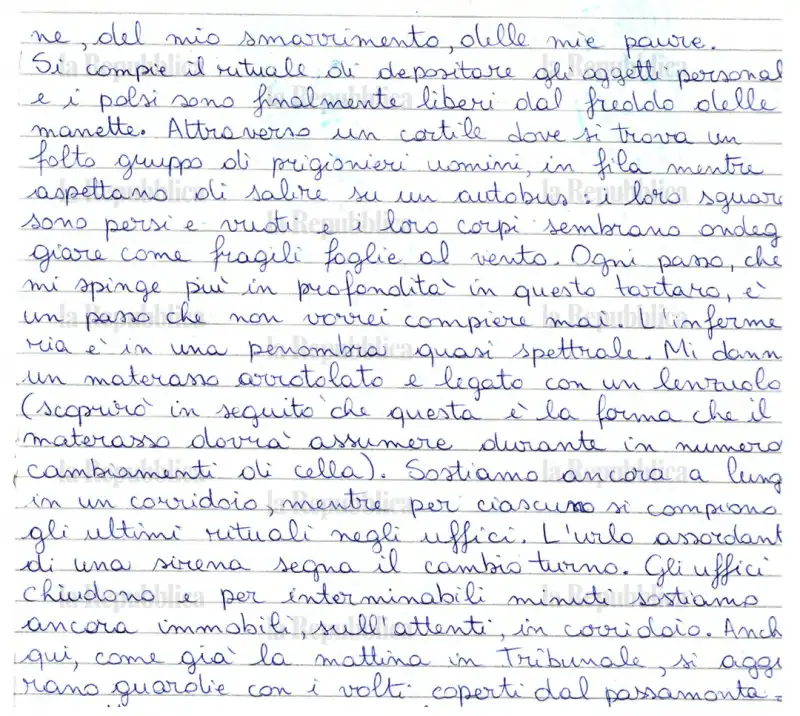 ne, del mio smarrimento, delle mie paure.
Si compie il rituale di depositare gli oggetti personal
e i polsi sono finalmente liberi dal freddo delle
manette. Attraverso un cortile dove si trova un
folto gruppo di prigionieri uomini, in fila mentre
aspettano di salire su un autobus: i loro sguar
sono persi e vuoti e i loro corpi sembrano ondeg
giare come fragili foglie al vento. Ogni passo, che
mi spinge più in profondità in questo tartaro, è
un passo che non vorrei compiere mai. L'inferme
ria è in una penombra quasi spettrale. Mi dann
un materasso arrotolato e legato con un lenzuolo
(scoprirò in seguito che questa è la forma che il
materasso dovrà assumere durante in numero
cambiamenti di cella). Sostiamo ancora a lung
in un corridoio, mentre per ciascuno si compiono
gli ultimi rituali negli uffici. L'urlo assordant
di una sirena segna il cambio turno. Gli uffici
chiudono e per interminabili minuti sostiamo
ancora immobili, sull'attenti, in corridoio. Anch
qui, come già la mattina in Tribunale, si aggi
rano guardie con i volti coperti dal passamonta-
la Repubblica